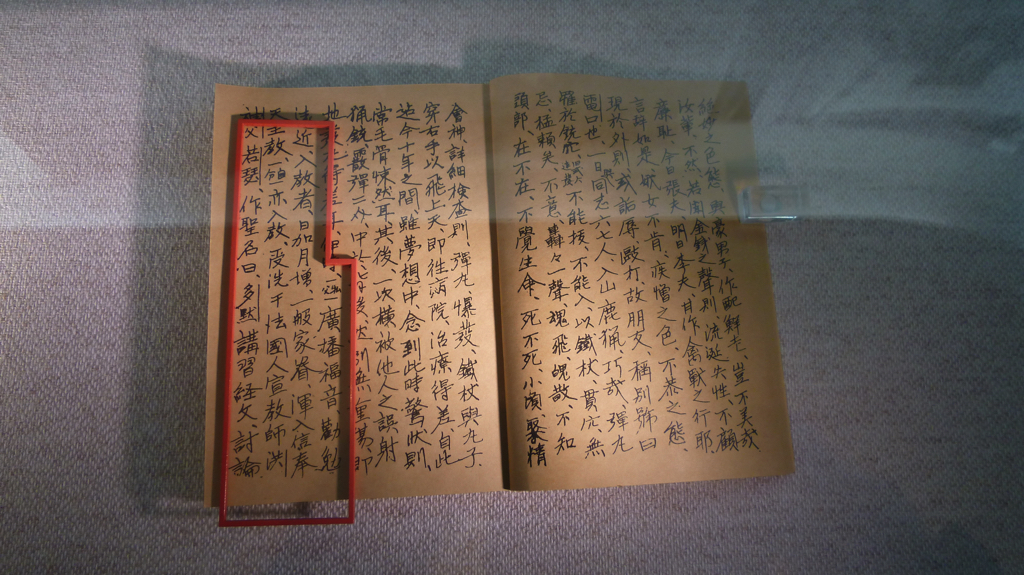 絃學之色態、與豪男去、作配鮮老、豈不美哉
汝輩、不然、若聞金錢之聲則、流涎失性、不顧
廉耻、今日張夫、明日李夫、甘作禽獸之行耶
言詳如是、妓女不肯、疾憎之色、不恭之態、
現於外則、或詬辱毆打故朋友、稱別號曰
雷口也、一日間芝六七人、入山鹿獵、巧哉、彈丸
羅於銃腔、不能拔、不能入以鐵杖、貫穴無
忌、猛賴矣、不意、轟々一聲魂飛魄散、不知
頭部、在不在、不覺生命、死不死、小頃聚情
會神、詳細檢查則、彈丸、爆發、鐵杖與丸子、
穿右手以飛上天即往病院治療得差、自此
迄今十年之間雖夢想中念到此時驚汰則、
常毛骨悚然耳其後、一次橫被他人之誤射
獵銃、霰彈二次、中
地 廣播福音、勸勉
法近入敎者、日加月增一般家眷、渾入信奉
天主敎、領亦入敎、受洗于法國人宣敎師洪
神父若瑟、作聖名曰、多默講習経文、討論